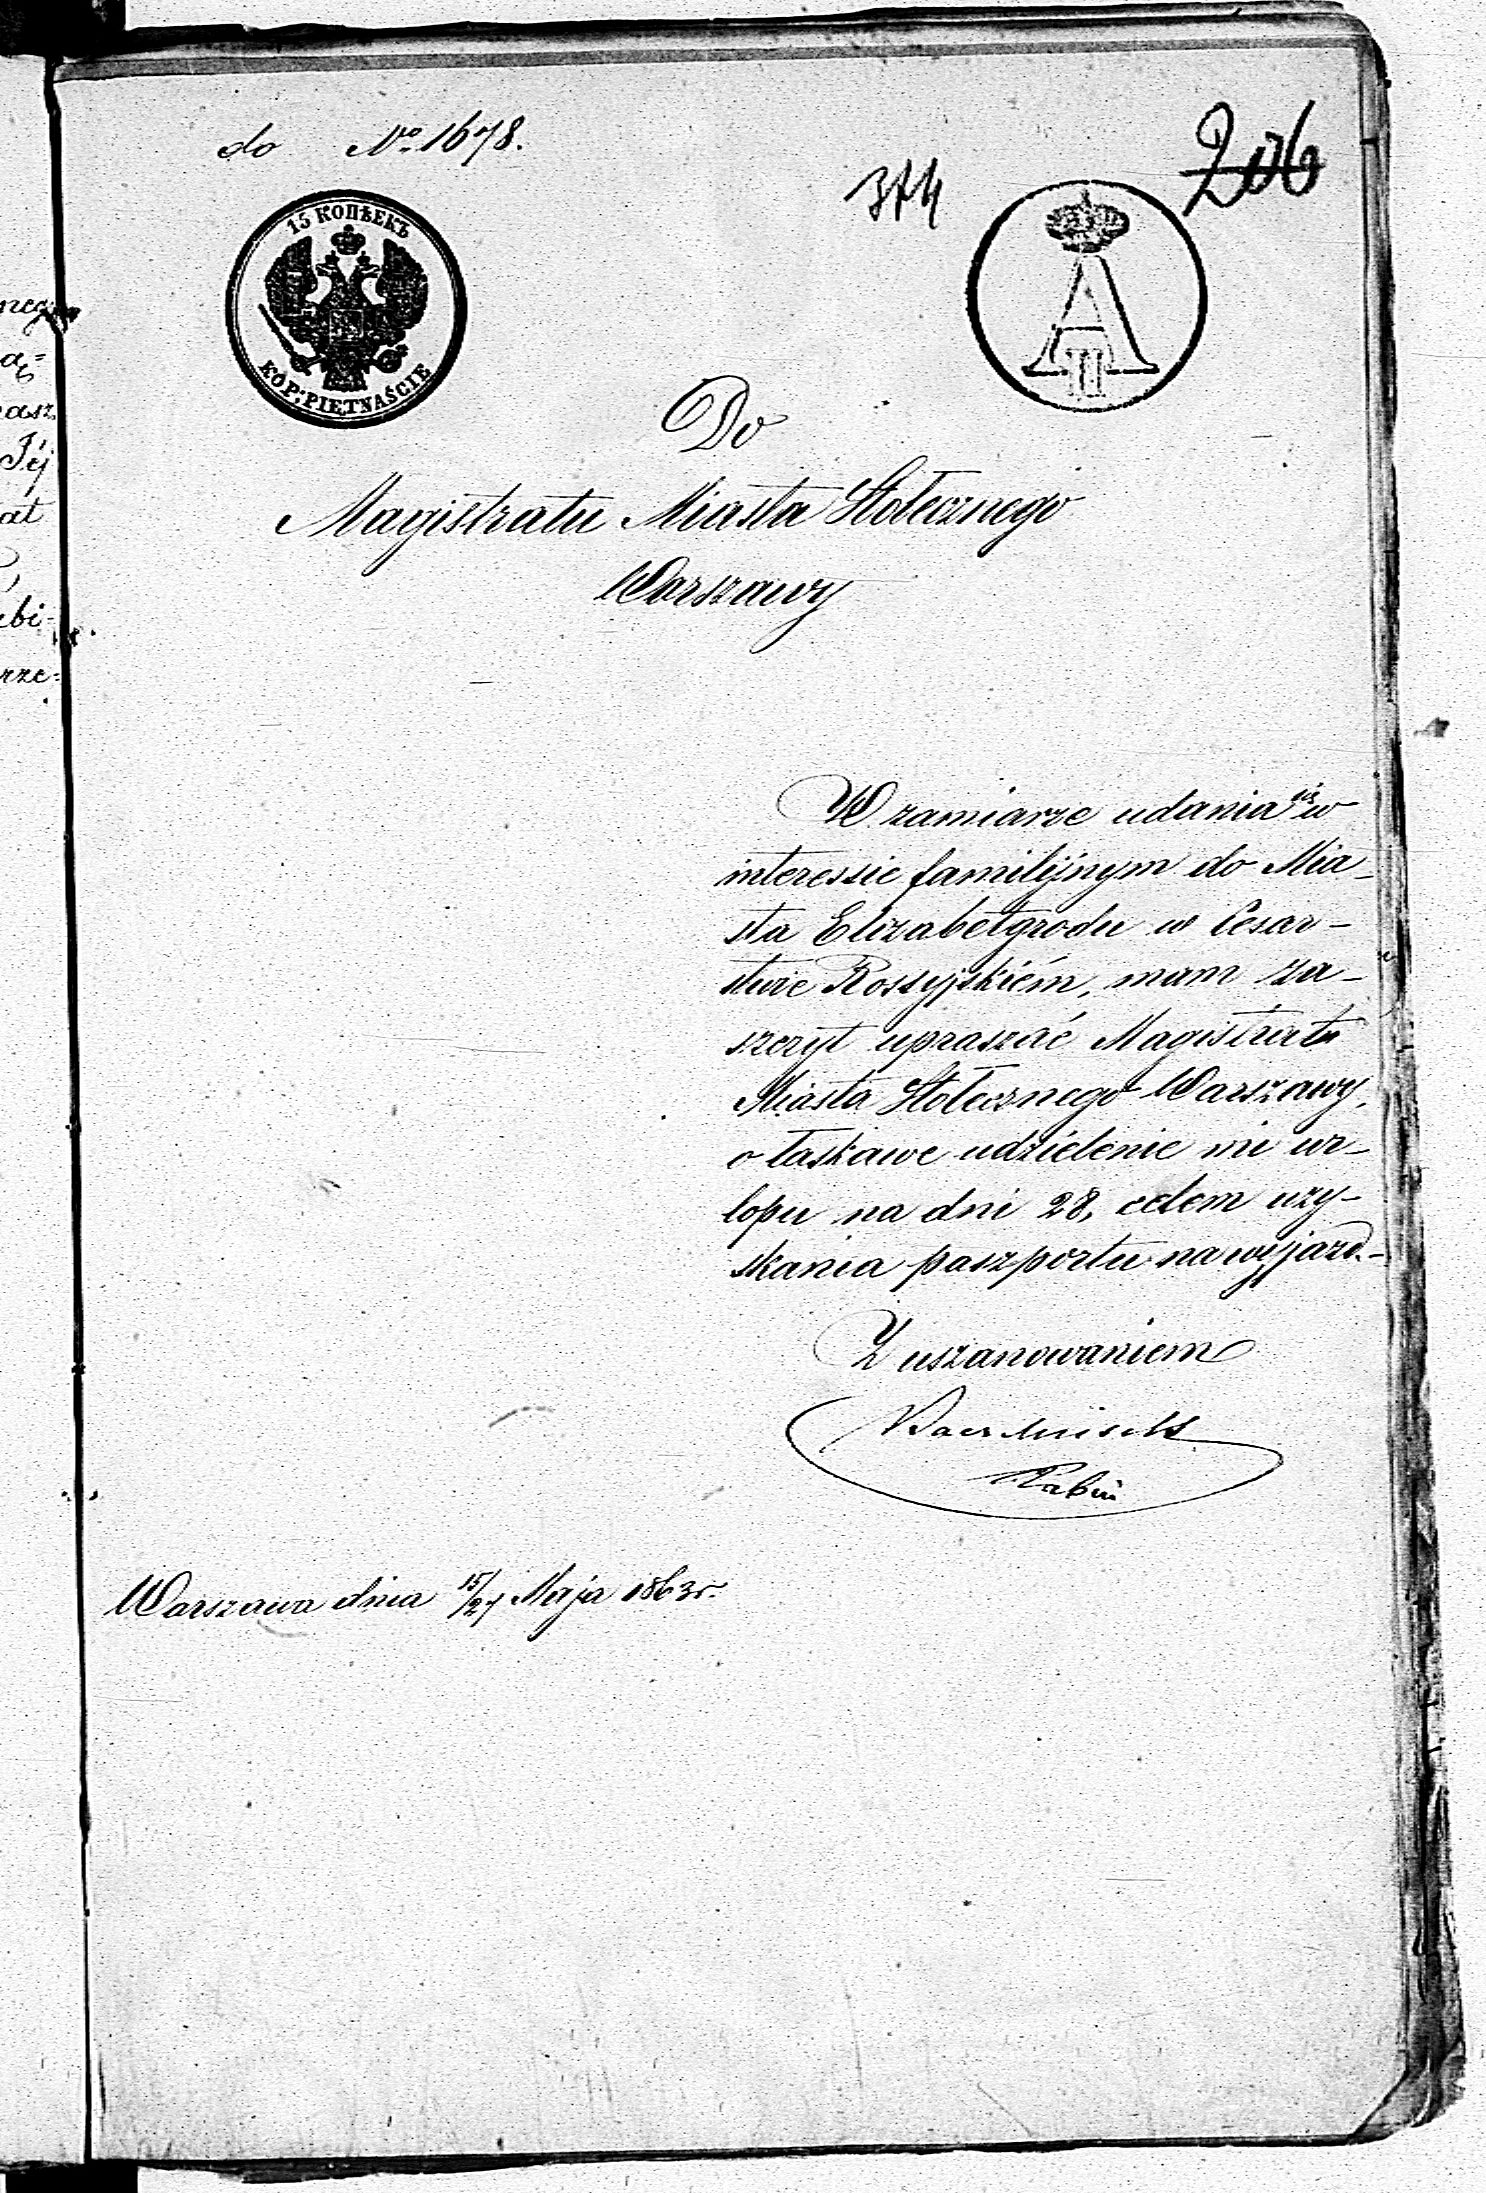 do No. 1678.
374
206
15 КОПѢЕКЪ
КОР: PIĘTNAŚCIE
А II
Do
Magistratu Miasta Stołecznego
Warszawy
W zamiarze udania się w
interessie familijnym do Mia_
sta Elizabetgrodu w Cesar_
stwie Rossyjskiém, mam za_
szczyt upraszać Magistratu
Miasta Stołecznego Warszawy,
o łaskawe udzielenie mi ur_
lopu na dni 28, celem uzy_
skania paszportu na wyjazd._
Z uszanowaniem
Baer Meisels
Rabin
Warszawa dnia 15/27 Maja 1863 r.